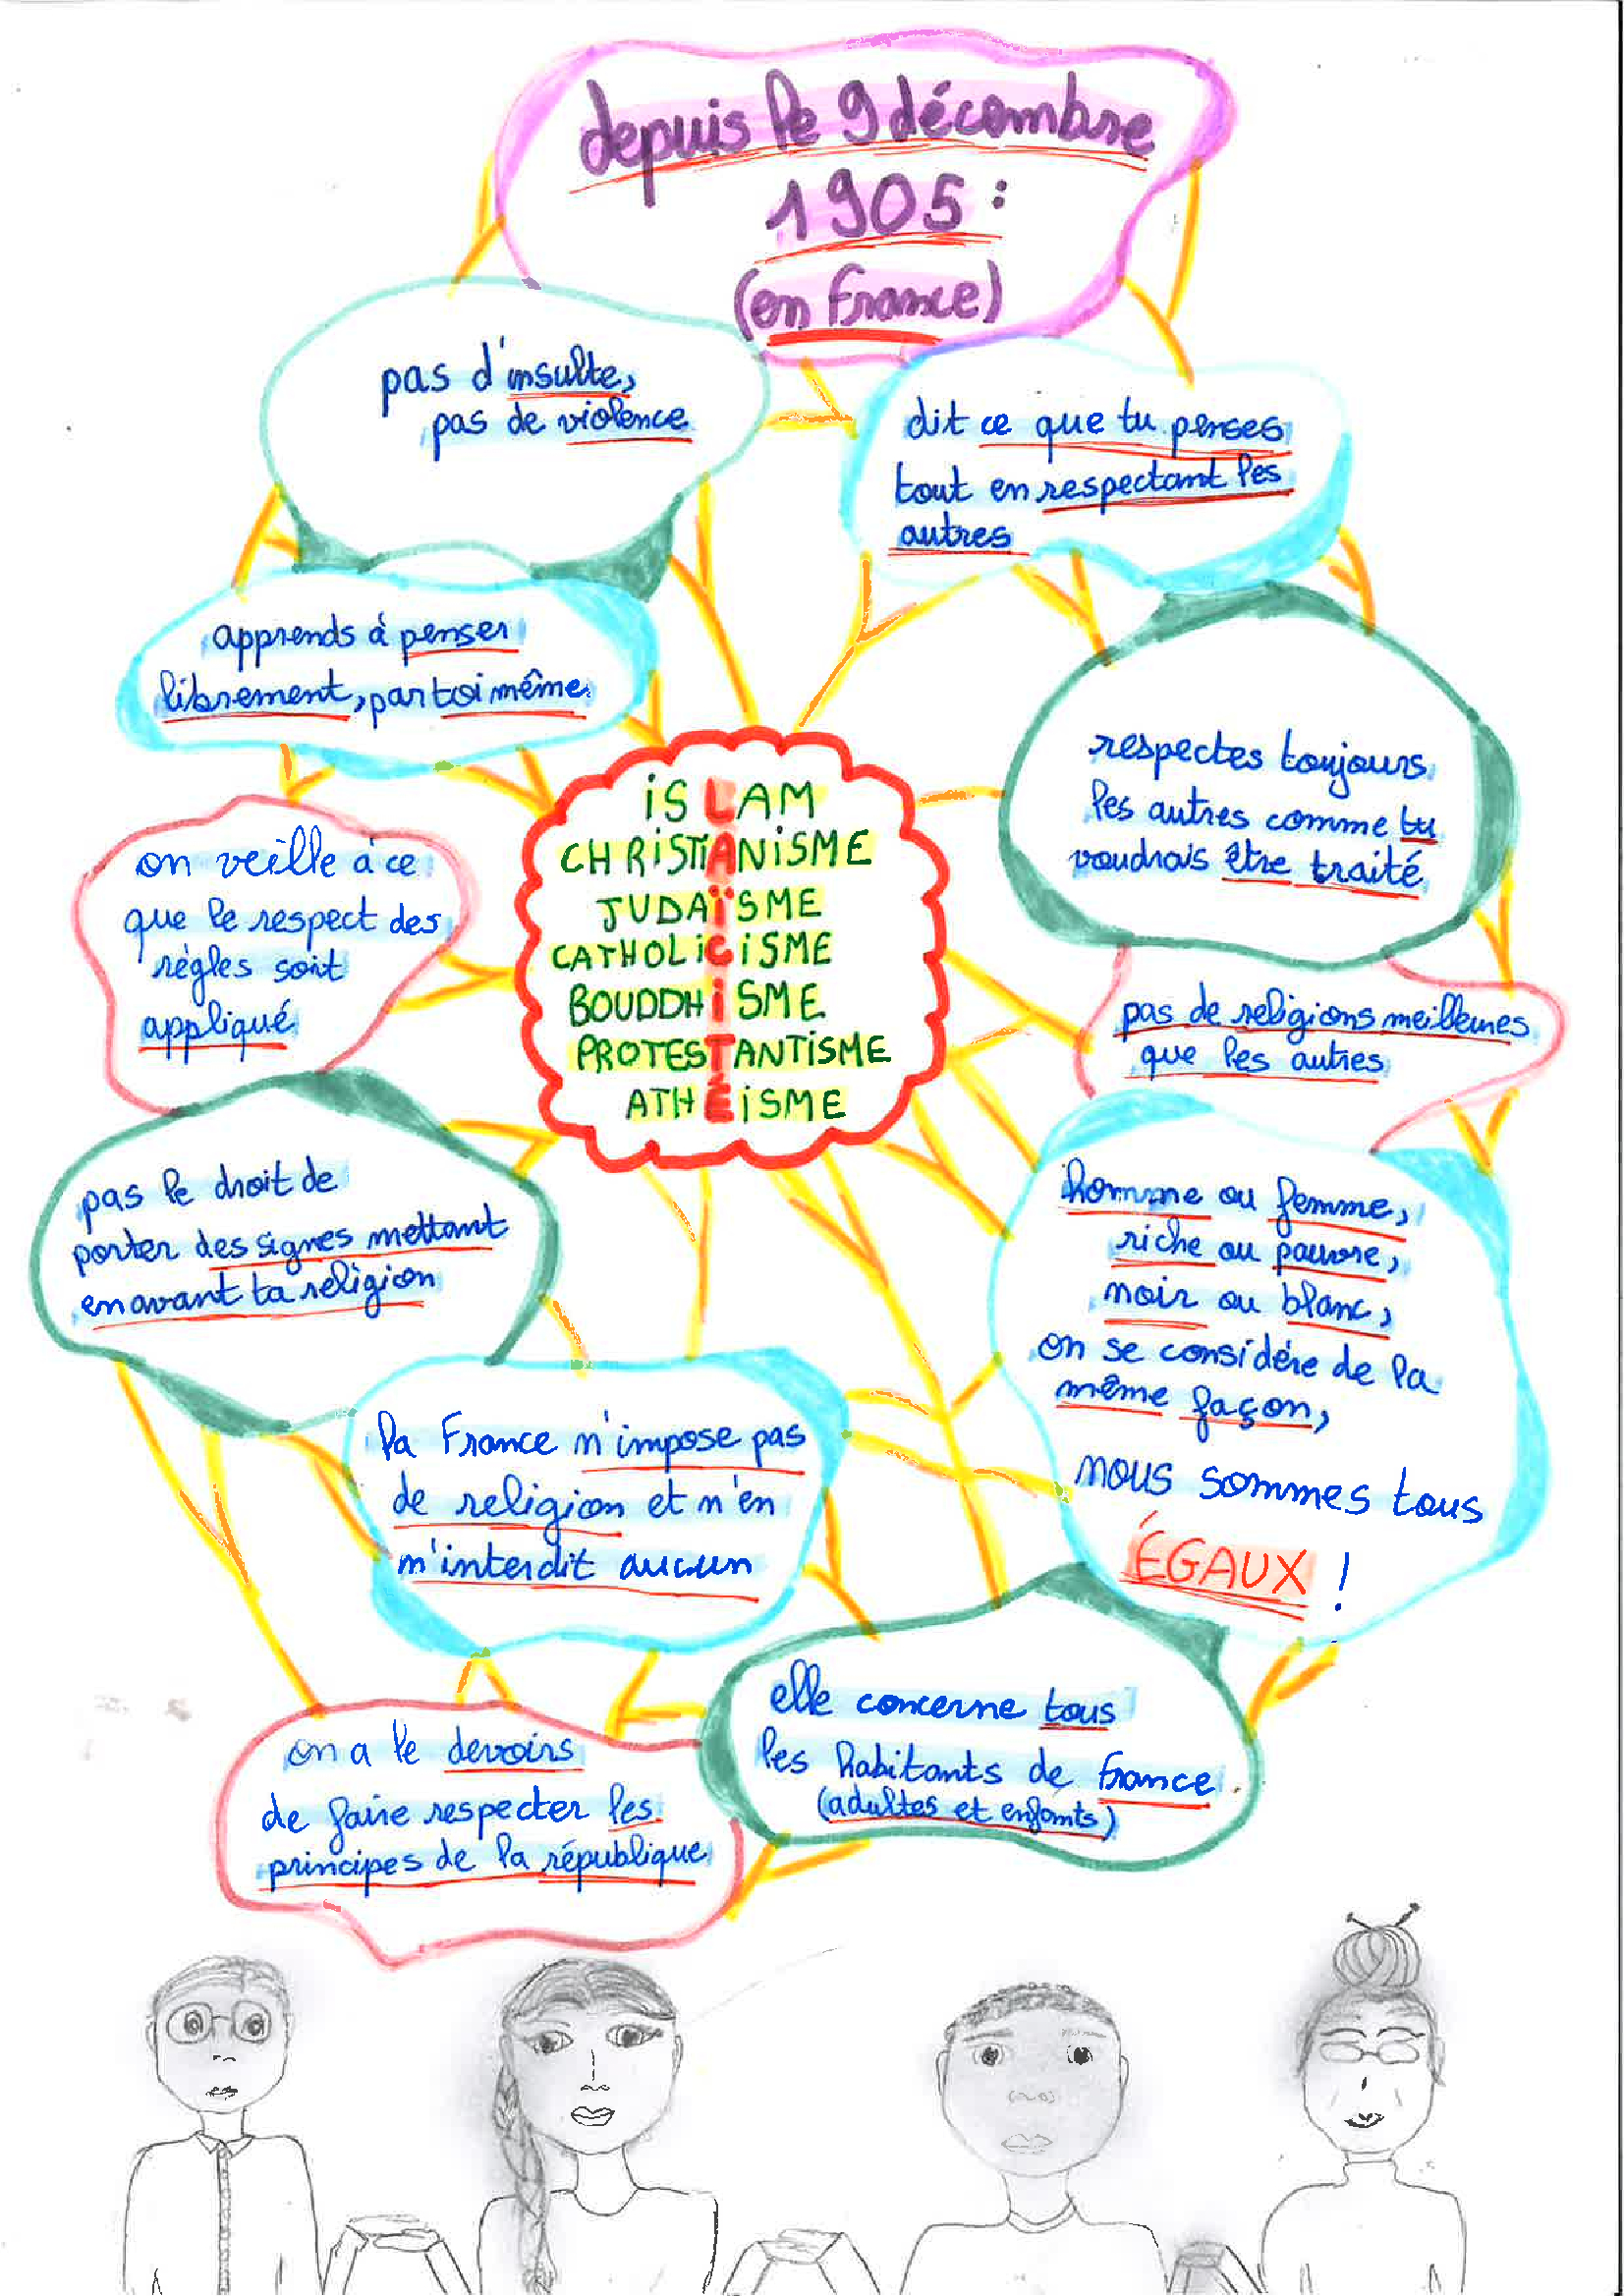 depuis le 9 décembre
1905 :
(en France)
pas d'insulte,
pas de violence
dit ce que tu penses
tout en respectant les
autres
apprends à penser
librement, par toi même
respectes toujours
les autres comme tu
voudrais être traité
iSLAM
CHRiSTIANiSME
JUDAÏSME
CATHOLiCiSME
BOUDDHiSME
PROTESTANTiSME
ATHÉiSME
on veille à ce
que le respect des
règles soit
appliqué
pas de religions meilleures
que les autres
pas le droit de
porter des signes mettant
en avant ta religion
homme ou femme,
riche ou pauvre,
noir ou blanc,
on se considère de la
même façon,
nous sommes tous
ÉGAUX !
la France n'impose pas
de religion et n'en
n'interdit aucun
elle concerne tous
les habitants de France.
(adultes et enfants)
on a le devoirs
de faire respecter les
principes de la république